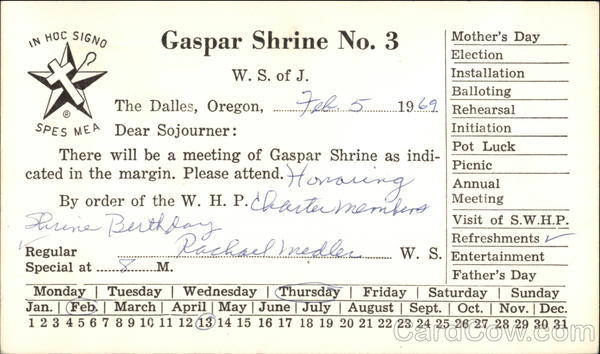 IN HOC SIGNO
SPES MEA
®
Gaspar Shrine No. 3
W. S. of J.
The Dalles, Oregon, Feb. 5 1969
Dear Sojourner:
There will be a meeting of Gaspar Shrine as indi-
cated in the margin. Please attend. Honoring
By order of the W. H. P. Charter Members
Shrine Birthday
✓
Regular Rachael Medler W. S.
Special at 8 M.
Mother's Day
Election
Installation
Balloting
Rehearsal
Initiation
Pot Luck
Picnic
Annual
Meeting
Visit of S.W.H.P.
Refreshments ✓
Entertainment
Father's Day
Monday | Tuesday | Wednesday | Thursday | Friday | Saturday | Sunday
Jan. | Feb. | March | April | May | June | July | August | Sept. | Oct. | Nov. | Dec.
1 2 3 4 5 6 7 8 9 10 11 12 13 14 15 16 17 18 19 20 21 22 23 24 25 26 27 28 29 30 31
CardCow.com